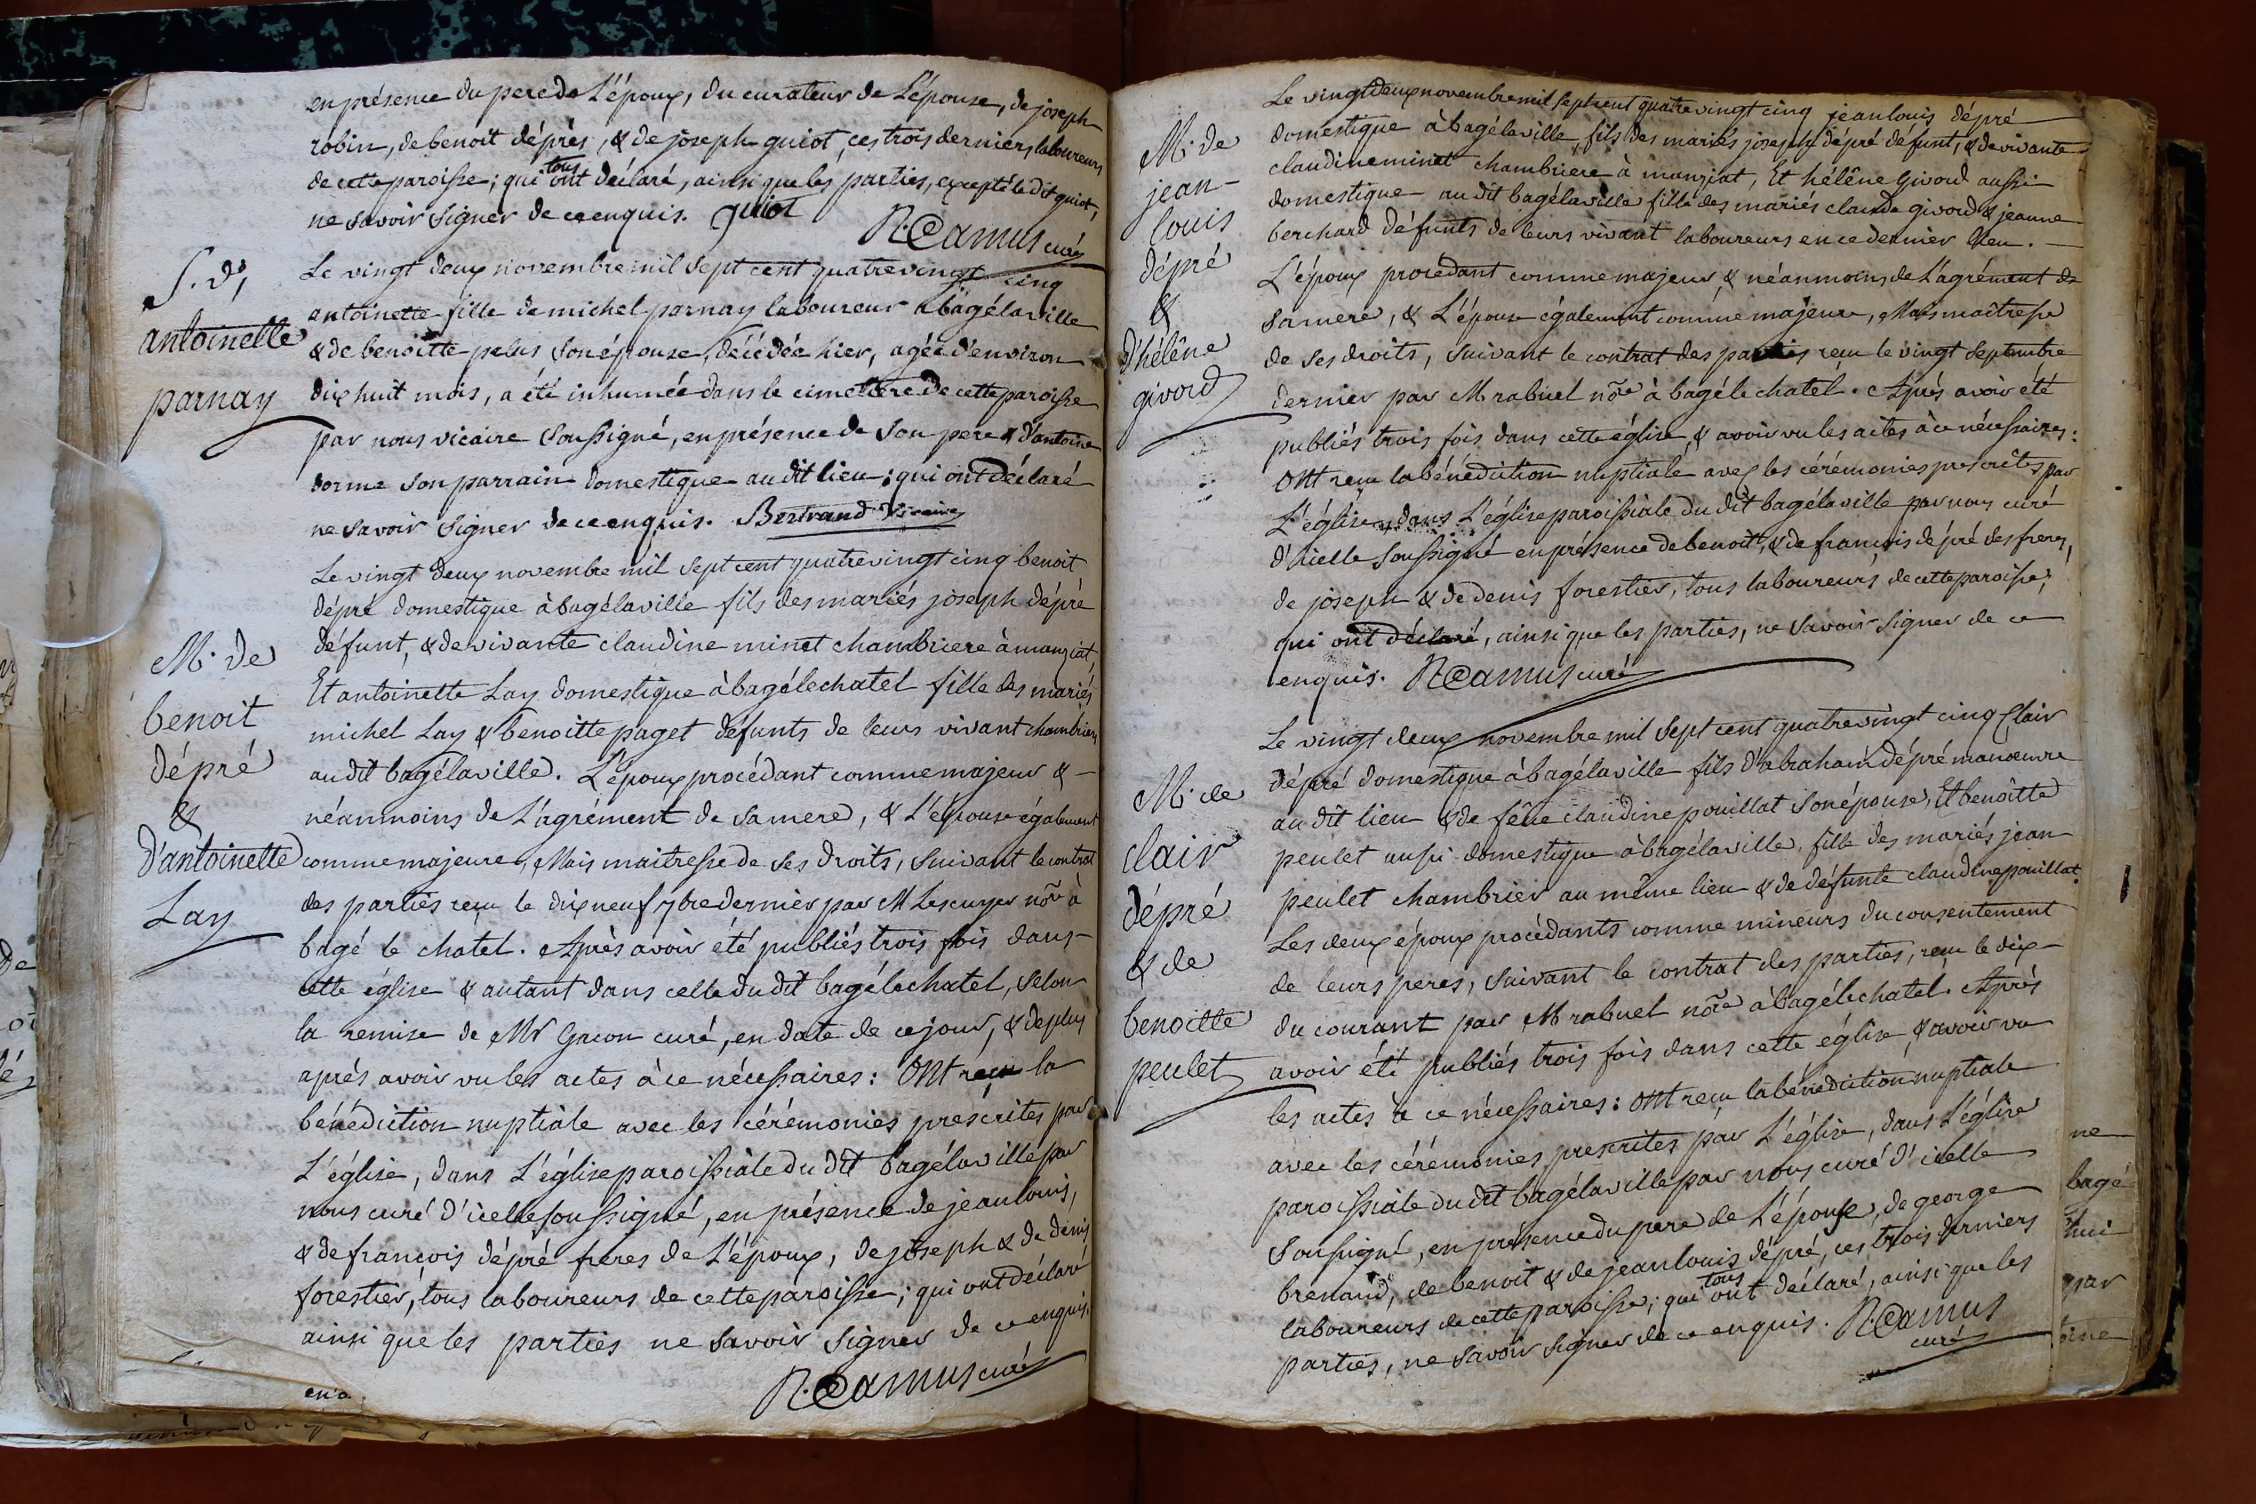 en présence du pere de L'époux, du curateur de L'épouse, de joseph
robin, de benoit déprés, & de joseph guiot, ces trois derniers laboureurs
de cette paroisse; qui tous ont déclaré, ainsi que les parties, excepté le dit guiot,
ne savoir signer de ce enquis. guiot
R. Camus curé
S. d'
antoinette
parnay
Le vingt deux novembre mil sept cent quatre vingt cinq
antoinette fille de michel parnay laboureur a bagélaville
& de benoitte pelus son épouse, décédée hier, agée d'environ
dix huit mois, a été inhumée dans le cimetiere de cette paroisse
par nous vicaire soussigné, en présence de son pere & d'antoine
dorme son parrain domestique au dit lieu; qui ont déclaré
ne savoir signer de ce enquis. Bertrand vicaire
M. de
benoit
dépré
&
d'antoinette
Lay
Le vingt deux novembre mil sept cent quatre vingt cinq benoit
dépré domestique à bagélaville fils des mariés joseph dépré
défunt, & de vivante claudine minet chambriere à manziat,
Et antoinette Lay domestique à bagélechatel fille des mariés
michel Lay & benoitte paget défunts de leurs vivant chambriers
au dit bagélaville. L'époux procédant comme majeur & –
néanmoins de L'agrément de sa mere, & L'épouse également
comme majeure, Mais maitresse de ses droits, suivant le contrat
des parties reçu le dix neuf 7bre dernier par M Lescuyer nore à
bagé le chatel. Après avoir été publiés trois fois dans –
cette église & autant dans celle du dit bagélechatel, selon
la remise de Mr Gacon curé, en date de ce jour, & de plus
aprés avoir vu les actes à ce nécessaires: Ont reçu la
bénédiction nuptiale avec les cérémonies prescrites par
L'église, dans L'église paroissiale du dit bagélaville par
nous curé d'icelle soussigné, en présence de jean louis,
& de françois dépré freres de L'époux, de joseph & de denis
forestier, tous laboureurs de cette paroisse; qui ont déclaré
ainsi que les parties ne savoir signer de ce enquis.
R. Camus curé
M. de
jean –
louis
dépré
&
d'hélêne
givord
Le vingt deux novembre mil sept cent quatre vingt cinq jean louis dépré
domestique à bagélaville, fils des mariés joseph dépré défunt, & de vivante
claudine minet chambriere à manziat, Et hélêne Givord aussi
domestique au dit bagélaville fille des mariés claude givord & jeanne
berchard défunts de leurs vivant laboureurs en ce dernier lieu. –
L'époux procédant comme majeur & néanmoins de L'agrément de
sa mere, & L'épouse également comme majeure, Mais maîtresse
de ses droits, suivant le contrat des parties reçu le vingt septembre
dernier par M rabuel nore à bagélechatel. Après avoir été
publiés trois fois dans cette église, & avoir vu les actes à ce nécessaires:
Ont reçu la bénédiction nuptiale avec les cérémonies prescrites par
L'église, dans L'église paroissiale du dit bagélaville par nous curé
d'icelle soussigné en présence de benoit, & de françois dépré des freres,
de joseph & de denis forestier, tous laboureurs de cette paroisse;
qui ont déclaré, ainsi que les parties, ne savoir signer de ce
enquis. R. Camus curé
M. de
clair
dépré
& de
benoitte
peulet
Le vingt deux novembre mil sept cent quatre vingt cinq Clair
dépré domestique à bagélaville fils d'abraham dépré manoeuvre
au dit lieu & de fêue claudine pouillat son épouse, Et benoîtte
peulet aussi domestique à bagélaville, fille des mariés jean
peulet chambrier au même lieu & de défunte claudine pouillat.
Les deux époux procédants comme mineurs du consentement
de leurs peres, suivant le contrat des parties, reçu le dix –
du courant par M rabuel nore à bagélechatel. Après
avoir été publiés trois fois dans cette église & avoir vu
les actes à ce nécessaires: ont reçu la bénédiction nuptiale
avec les cérémonies prescrites par L'église, dans L'église
paroissiale du dit bagélaville par nous curé d'icelle
soussigné, en présence du pere de L'épouse, de george
brenaud, de benoit & de jean louis dépré, ces trois derniers
laboureurs de cette paroisse; qui tous ont déclaré, ainsi que les
parties, ne savoir signer de ce enquis. R. Camus
curé
ne
bagé
par